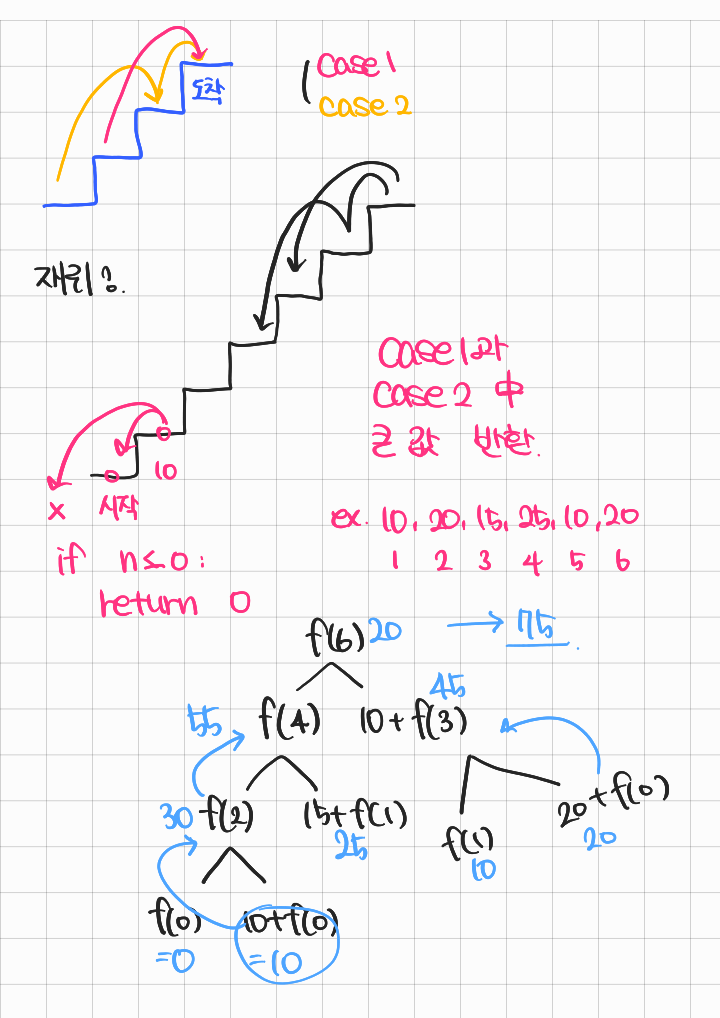 case 1
case 2
도착
재귀!
case 1과
case 2 中
큰 값 반환.
10
x 시작
ex. 10, 20, 15, 25, 10, 20
1 2 3 4 5 6
if n≤0:
return 0
f(6) 20 → 75
45
55 f(4) 10+f(3)
30 f(2) 15+f(1) f(1) 20+f(0)
25 10 20
f(0) 10+f(0)
=0 =10